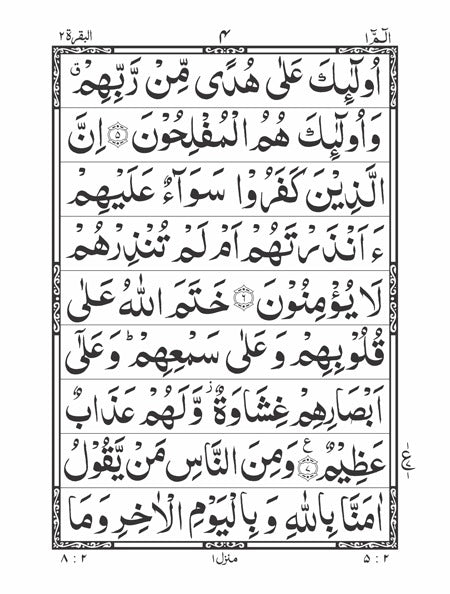 الٓمّٓ ۱ ۴ البقرة ۲
اُولٰٓئِكَ عَلٰى هُدًى مِّنْ رَّبِّهِمْ ق
وَاُولٰٓئِكَ هُمُ الْمُفْلِحُوْنَ ۵ اِنَّ
الَّذِيْنَ كَفَرُوْا سَوَآءٌ عَلَيْهِمْ
ءَاَنْذَرْتَهُمْ اَمْ لَمْ تُنْذِرْهُمْ
لَا يُؤْمِنُوْنَ ۶ خَتَمَ اللّٰهُ عَلٰى
قُلُوْبِهِمْ وَعَلٰى سَمْعِهِمْ ط وَعَلٰٓى
اَبْصَارِهِمْ غِشَاوَةٌ ز وَّلَهُمْ عَذَابٌ
عَظِيْمٌ ۷ ع وَمِنَ النَّاسِ مَنْ يَّقُوْلُ
ع
اٰمَنَّا بِاللّٰهِ وَبِالْيَوْمِ الْاٰخِرِ وَمَا
۵ : ۲ منزل ۱ ۸ : ۲